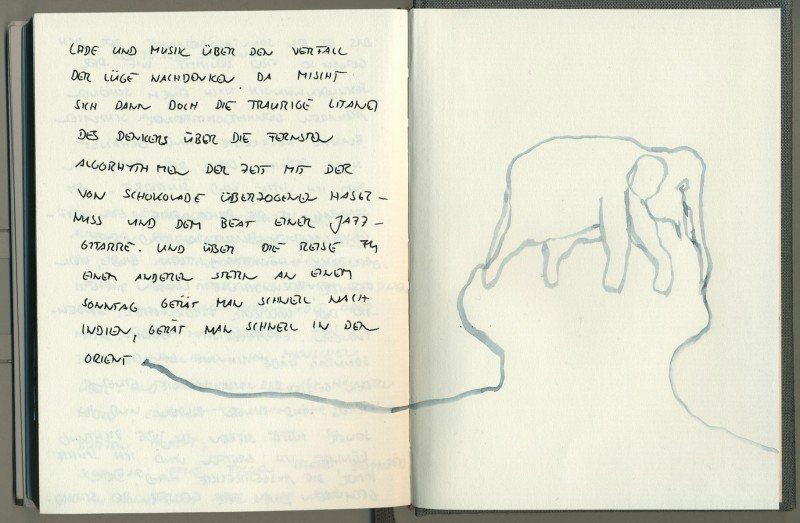 LADE UND MUSIK ÜBER DEN VERFALL
DER LÜGE NACHDENKEN. DA MISCHT
SICH DANN DOCH DIE TRAURIGE LITANEI
DES DENKERS ÜBER DIE FERNSTEN
ALGORHYTHMEN DER ZEIT MIT DER
VON SCHOKOLADE ÜBERZOGENEN HASEL-
NUSS UND DEM BEAT EINER JAZZ-
GITARRE. UND ÜBER DIE REISE ZU
EINEM ANDEREN STERN AN EINEM
SONNTAG GERÄT MAN SCHNELL NACH
INDIEN, GERÄT MAN SCHNELL IN DEN
ORIENT